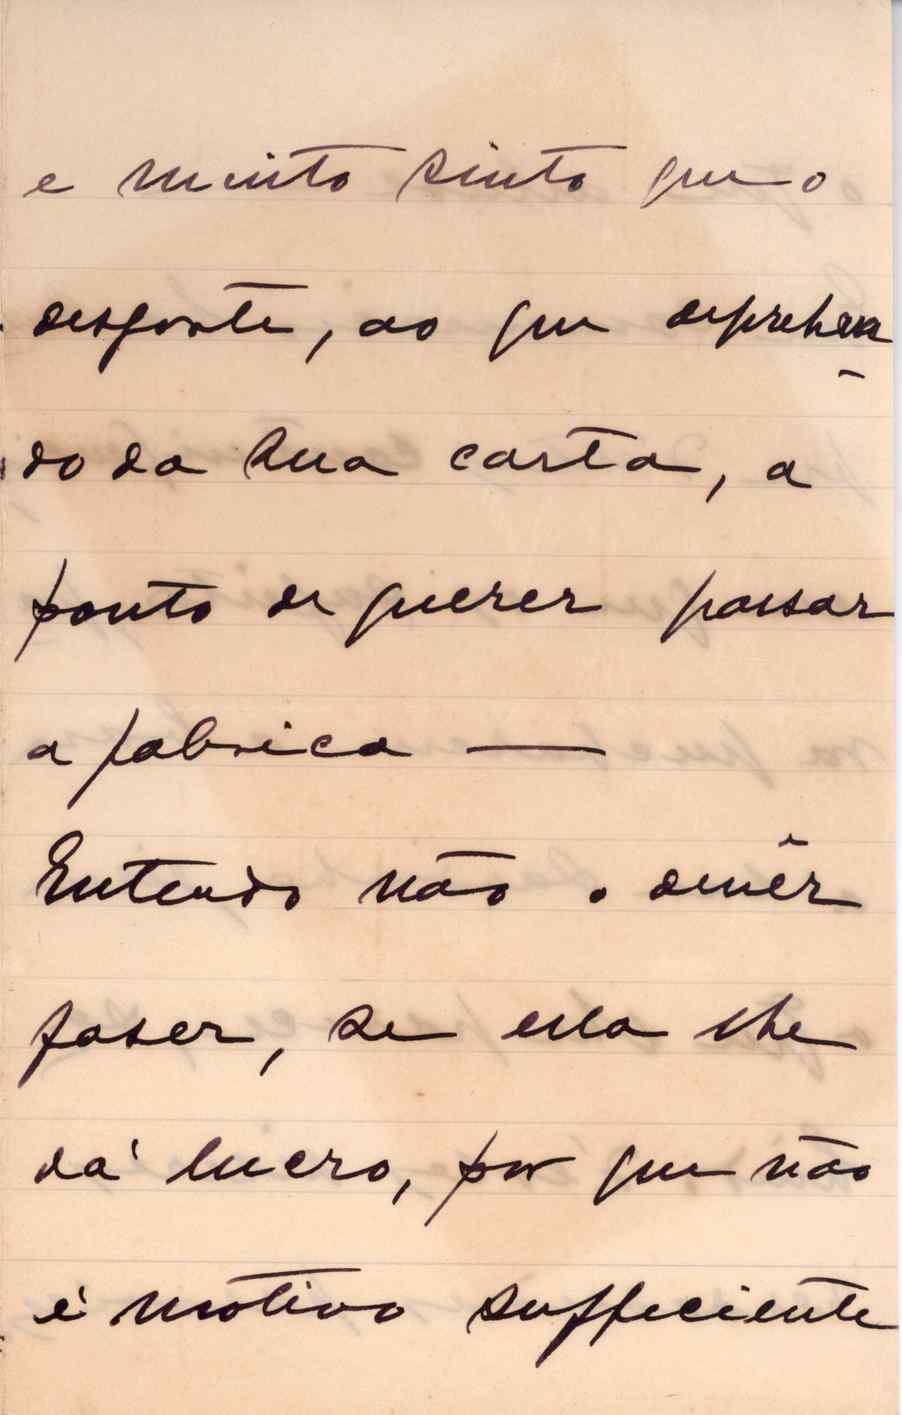 e muito sinto que o
desgoste, ao que deprehen-
do da sua carta, a
ponto de querer passar
a fabrica —
Entendo não o devêr
faser, se ella lhe
dá lucro, por que não
é motivo sufficiente